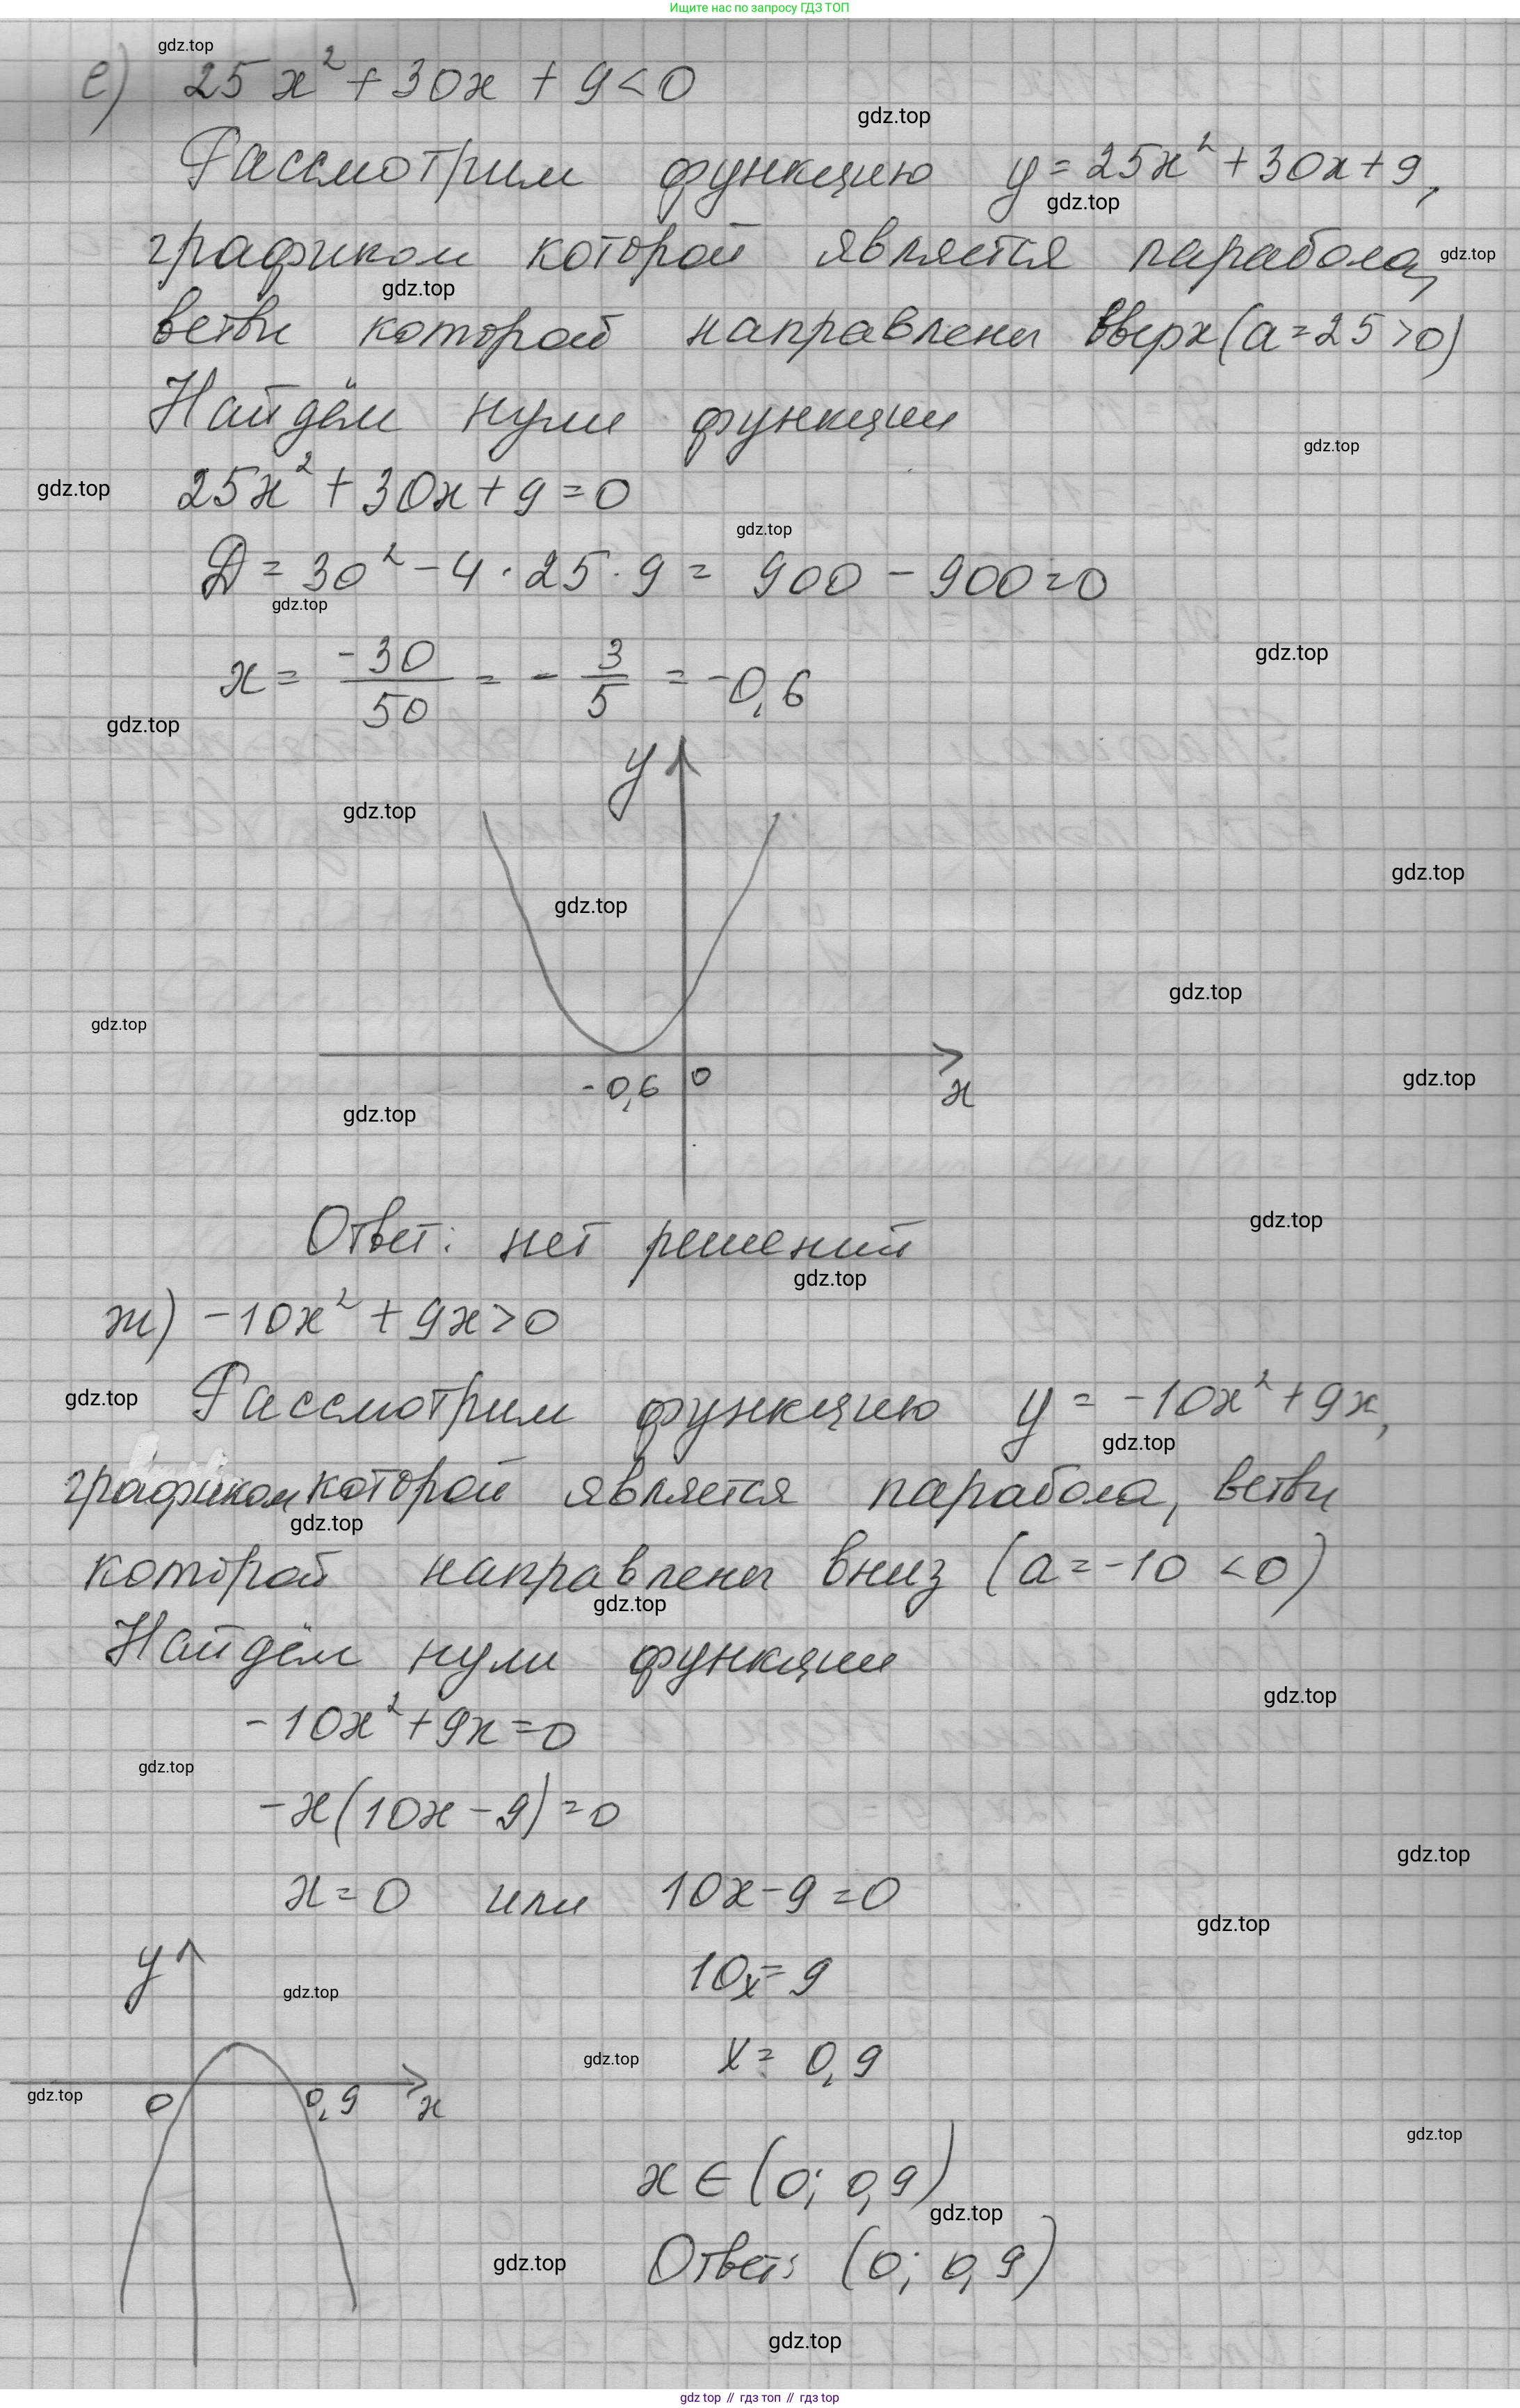 Ищите нас по запросу ГДЗ ТОП
gdz.top
е) 25x² + 30x + 9 < 0
gdz.top
Рассмотрим функцию y = 25x² + 30x + 9,
gdz.top
графиком которой является парабола,
gdz.top
gdz.top
ветви которой направлены вверх (a = 25 > 0)
Найдём нули функции
gdz.top
gdz.top
25x² + 30x + 9 = 0
gdz.top
D = 30² - 4 · 25 · 9 = 900 - 900 = 0
gdz.top
gdz.top
x = -30/50 = - 3/5 = -0,6
gdz.top
y
gdz.top
gdz.top
gdz.top
gdz.top
gdz.top
-0,6 0 x
gdz.top
gdz.top
gdz.top
Ответ: нет решений
gdz.top
ж) -10x² + 9x > 0
gdz.top
Рассмотрим функцию y = -10x² + 9x,
gdz.top
графиком которой является парабола, ветви
gdz.top
которой направлены вниз (a = -10 < 0)
gdz.top
Найдём нули функции
gdz.top
-10x² + 9x = 0
gdz.top
-x(10x - 9) = 0
gdz.top
x = 0 или 10x - 9 = 0
gdz.top
y
10x = 9
gdz.top
gdz.top
x = 0,9
gdz.top
0 0,9 x
gdz.top
x ∈ (0; 0,9)
gdz.top
Ответ: (0; 0,9)
gdz.top
gdz.top
gdz top // гдз топ // гдз top